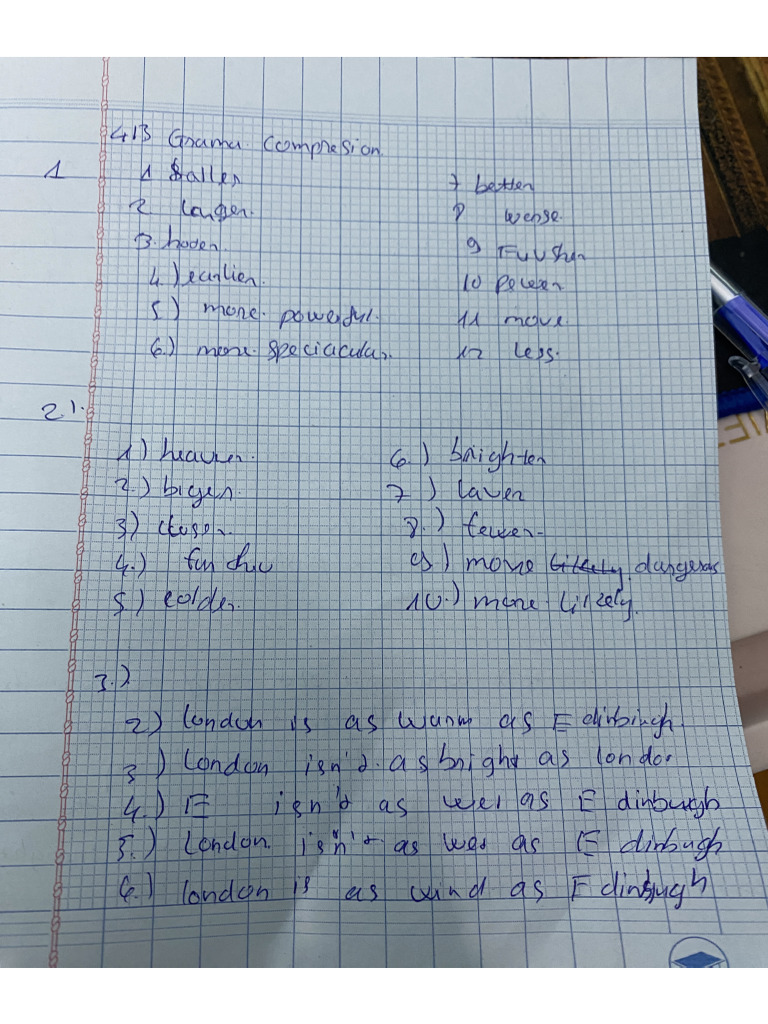 4B Grama Compresion
1
1 Saller
2 longer.
3. hoter.
4.) earlier.
5) more powerful.
6.) more speciacular.
7 better
8 werse
9 Fuvther
10 Pewer
11 move.
12 Less.
2).
1) heavier.
2.) biger.
3) closer.
4.)
5.) colder.
6.) brighter
7.)
8.) fewer.
9) more likely dangeras
10.) more likely.
3.)
2) London is as warm as Edinbirgh
3) London isn't as bright as london
4.) E isn't as wet as Edinburgh
5.) London isn't as wet as Edinbugh
6.) london is as wind as Edinbugh